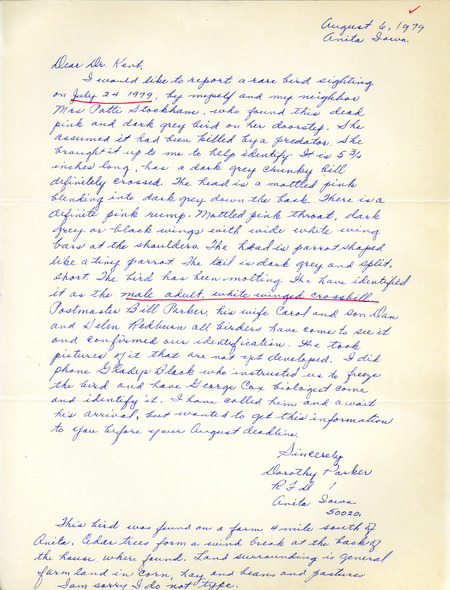 August 6, 1979
Anita Iowa.
Dear Dr. Kent,
I would like to report a rare bird sighting
on July 24 1979, by myself and my neighbor
Mrs Patti Stockham, who found this dead
pink and dark grey bird on her doorstep. She
assumed it had been killed by a predator. She
brought it up to me to help identify. It is 5 3/4
inches long, has a dark grey chunky bill
definitely crossed. The head is a mottled pink
blending into dark grey down the back. There is a
definite pink rump. Mottled pink throat, dark
grey or black wings with wide white wing
bars at the shoulders. The head is parrot shaped
like a tiny parrot. The tail is dark grey and split,
short. The bird has been molting. We have identified
it as the male adult, white winged crossbill
Postmaster Bill Parker, his wife Carol and son Dan
and Helen Redburn all birders have come to see it
and confirmed our identification. We took
pictures of it that are not yet developed. I did
phone Gladys Black who instructed us to freeze
the bird and have George Cox biologist come
and identify it. I have called him and await
his arrival, but wanted to get this information
to you before your August deadline.
Sincerely
Dorothy Parker
RFD 1
Anita Iowa
50020.
This bird was found on a farm 4 mile south of
Anita. Cedar trees form a wind break at the back of
the house where found. Land surrounding is general
farm land in corn, hay and beans and pastures
I am sorry I do not type.